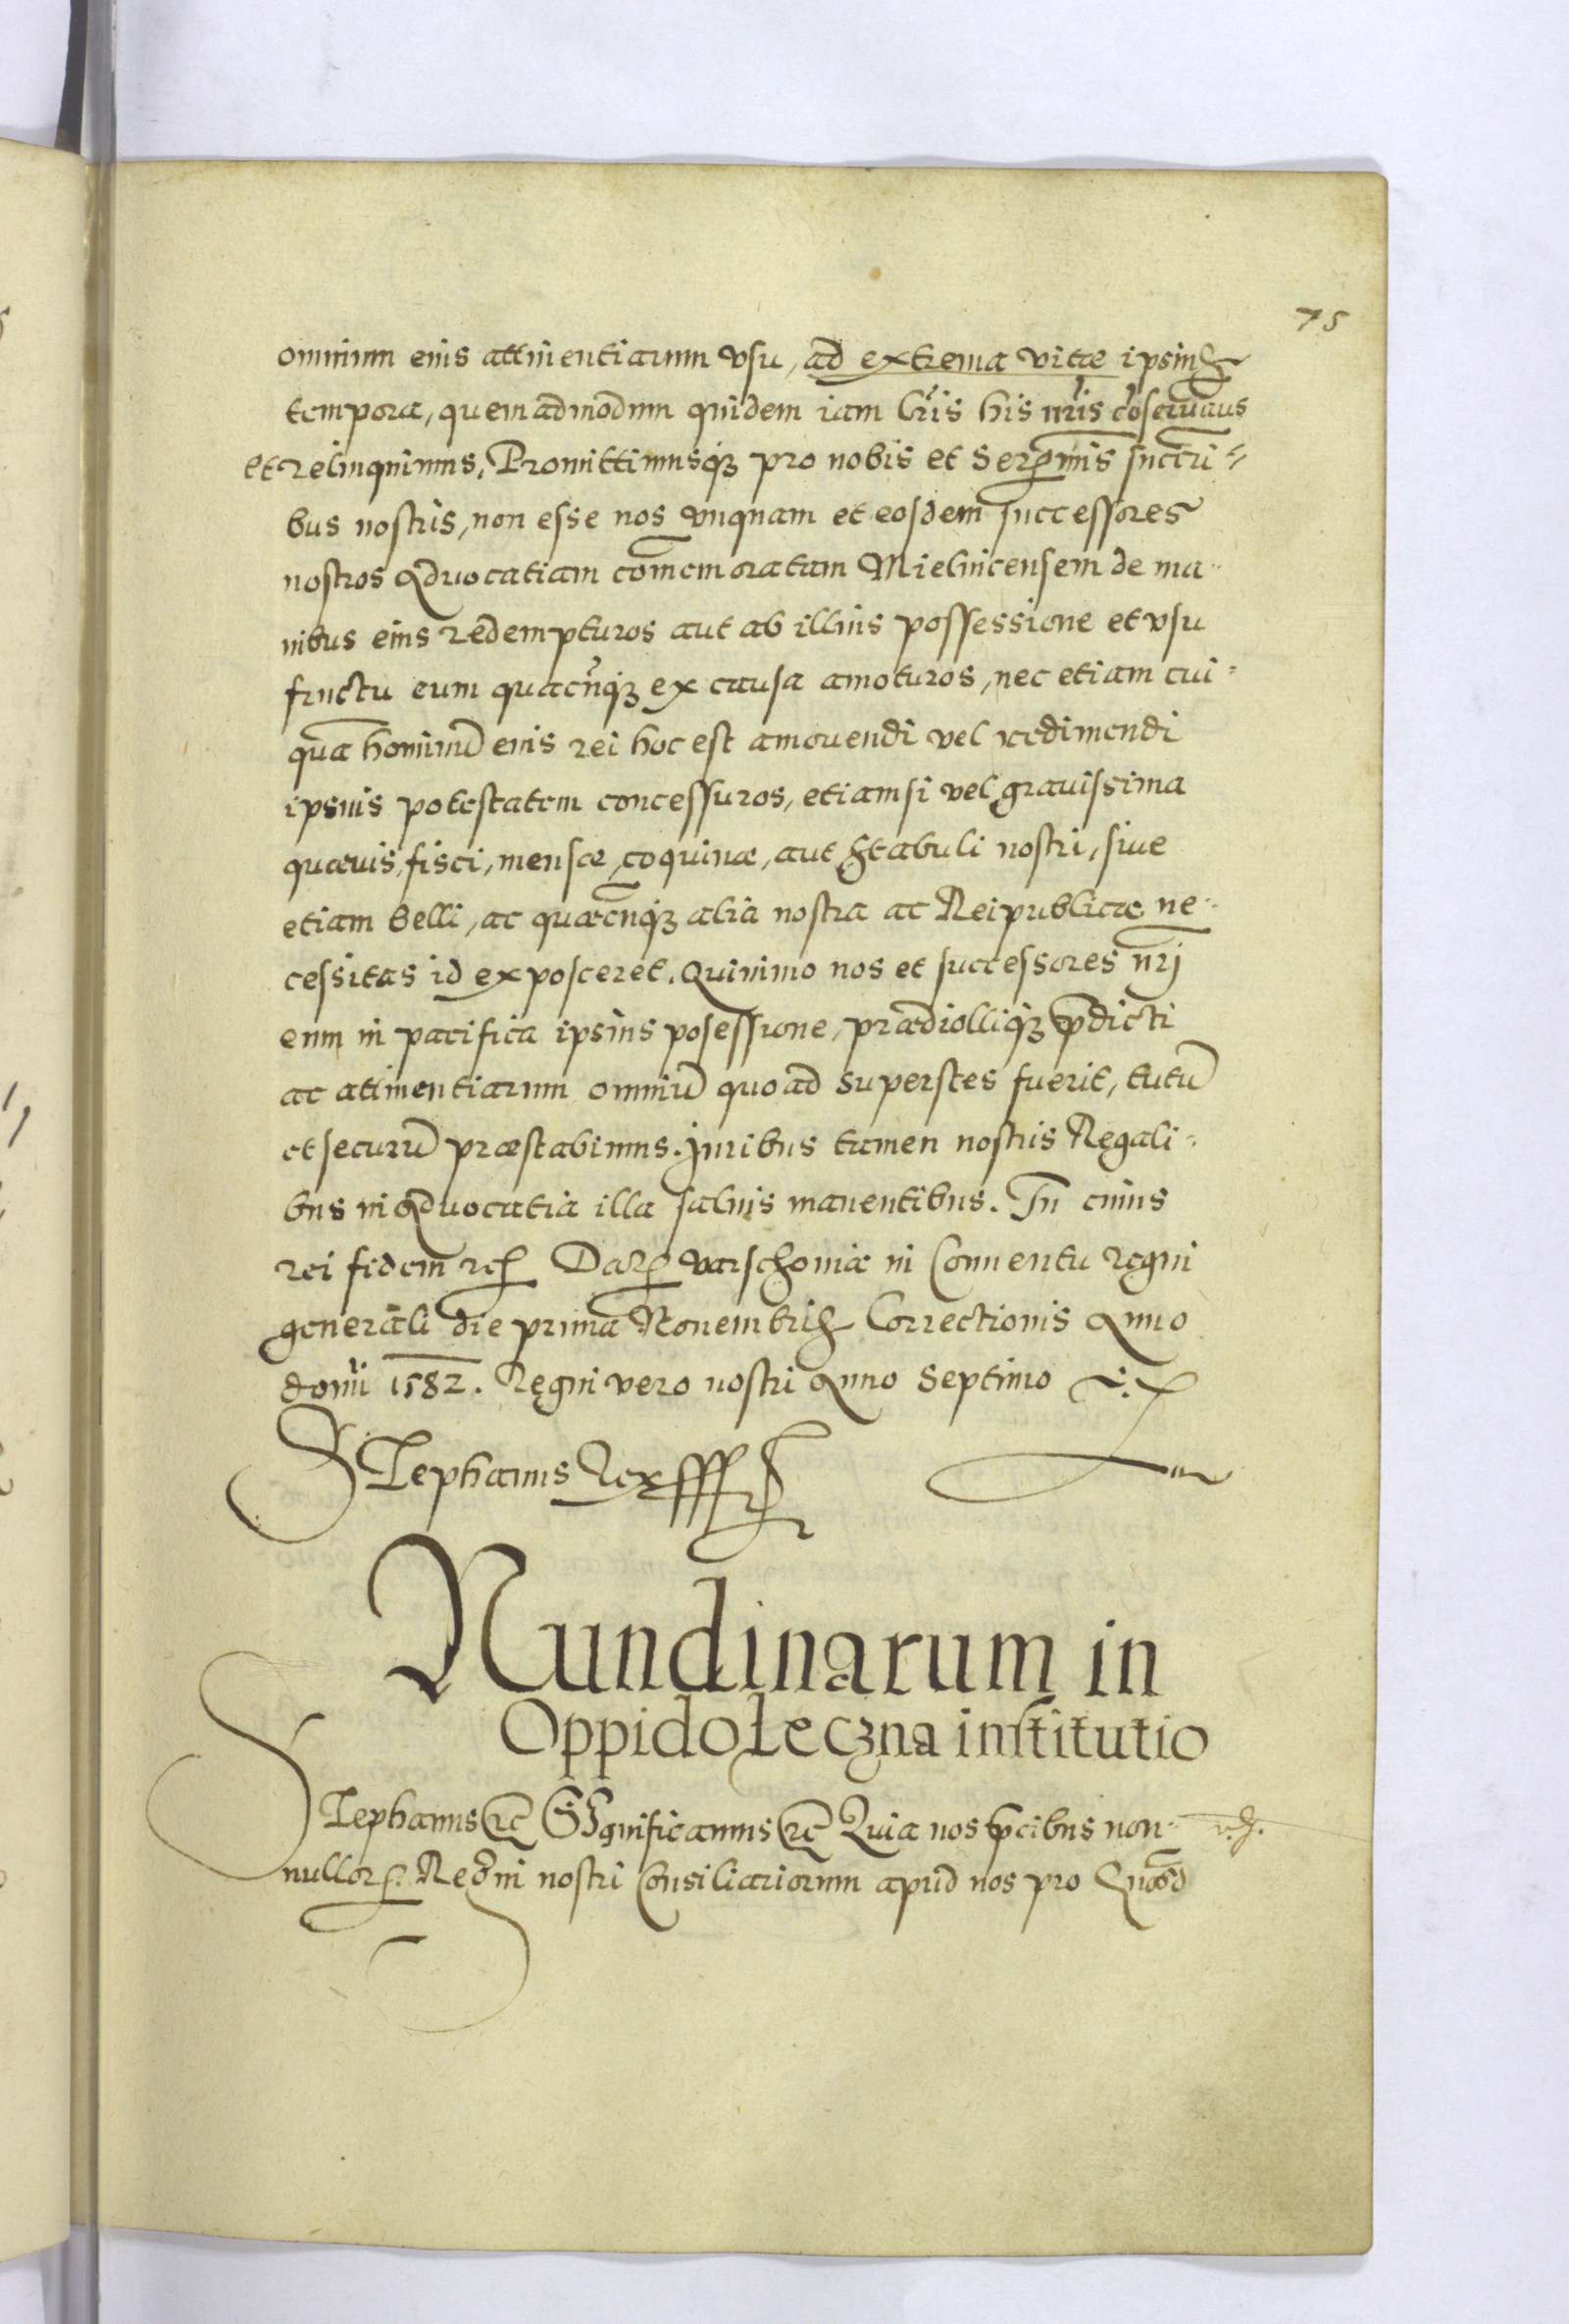 75
omnium eius attinentiarum vsu, ad extrema vitae ipsius
tempora, quemadmodum quidem iam lris his nris coseruaus
et relinquimus. Promittimusq3 pro nobis et Sermis succri-
bus nostris, non esse nos vnquam et eosdem successores
nostros Aduocatiam comemoratam Mielnicensem de ma-
nibus eius redempturos aut ab illius possessione et vsu
fructu eum quacunq3 ex causa amoturos, nec etiam cui-
qua hominu eius rei hoc est amouendi vel redimendi
ipsius potestatem concessuros, etiamsi vel grauissima
quaeuis, fisci, mensae, coquinae, aut Stabuli nostri, siue
etiam belli, ac quaecunq3 alia nostra ac Reipublicae ne-
cessitas id exposceret. Quinimo nos et successores nrj
eum in pacifica ipsius posessione, praediolliq3 pdicti
ac attinentiarum omniu quoad superstes fuerit, tutu
et securu praestabimus. Juribus tamen nostris Regali-
bus in Aduocatia illa saluis manentibus. In cuius
rei fidem etc Dat Varschouiae in Conuentu regni
generali die prima Nouembris Correctionis Anno
domi 1582. Regni vero nostri Anno Septimo
Stephanus Rex
Nundinarum in
Oppido Łeczna institutio
Stephanus etc Significamus etc Quia nos pcibus non-
nullor. Regni nostri Consiliariorum apud nos pro